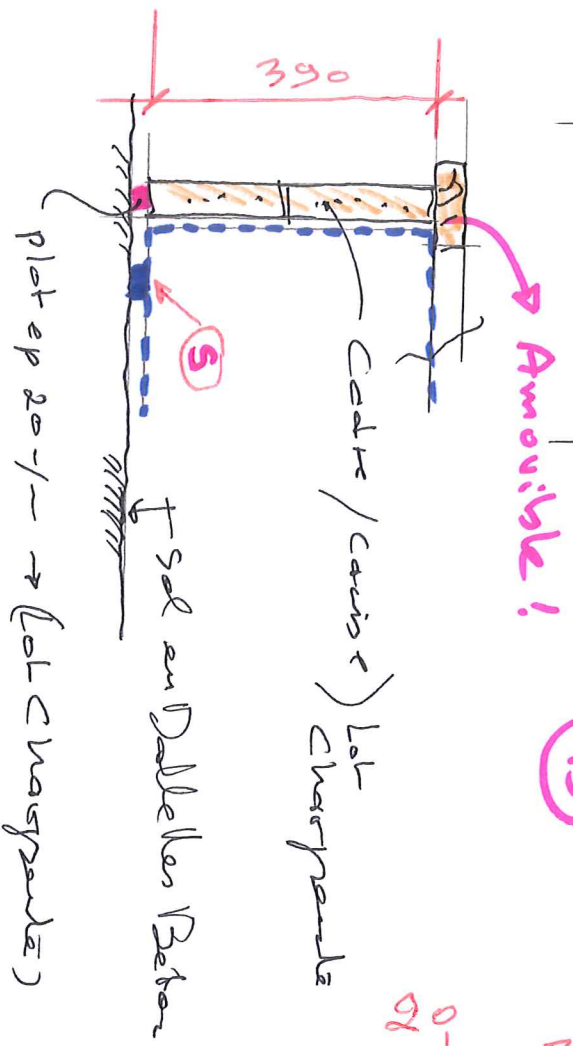 390
Amovible !
5
Cadre / caisse ) Lot
charpente
Sol en Dalles Béton
plot ep 20 -/- → (Lot Charpente)
20